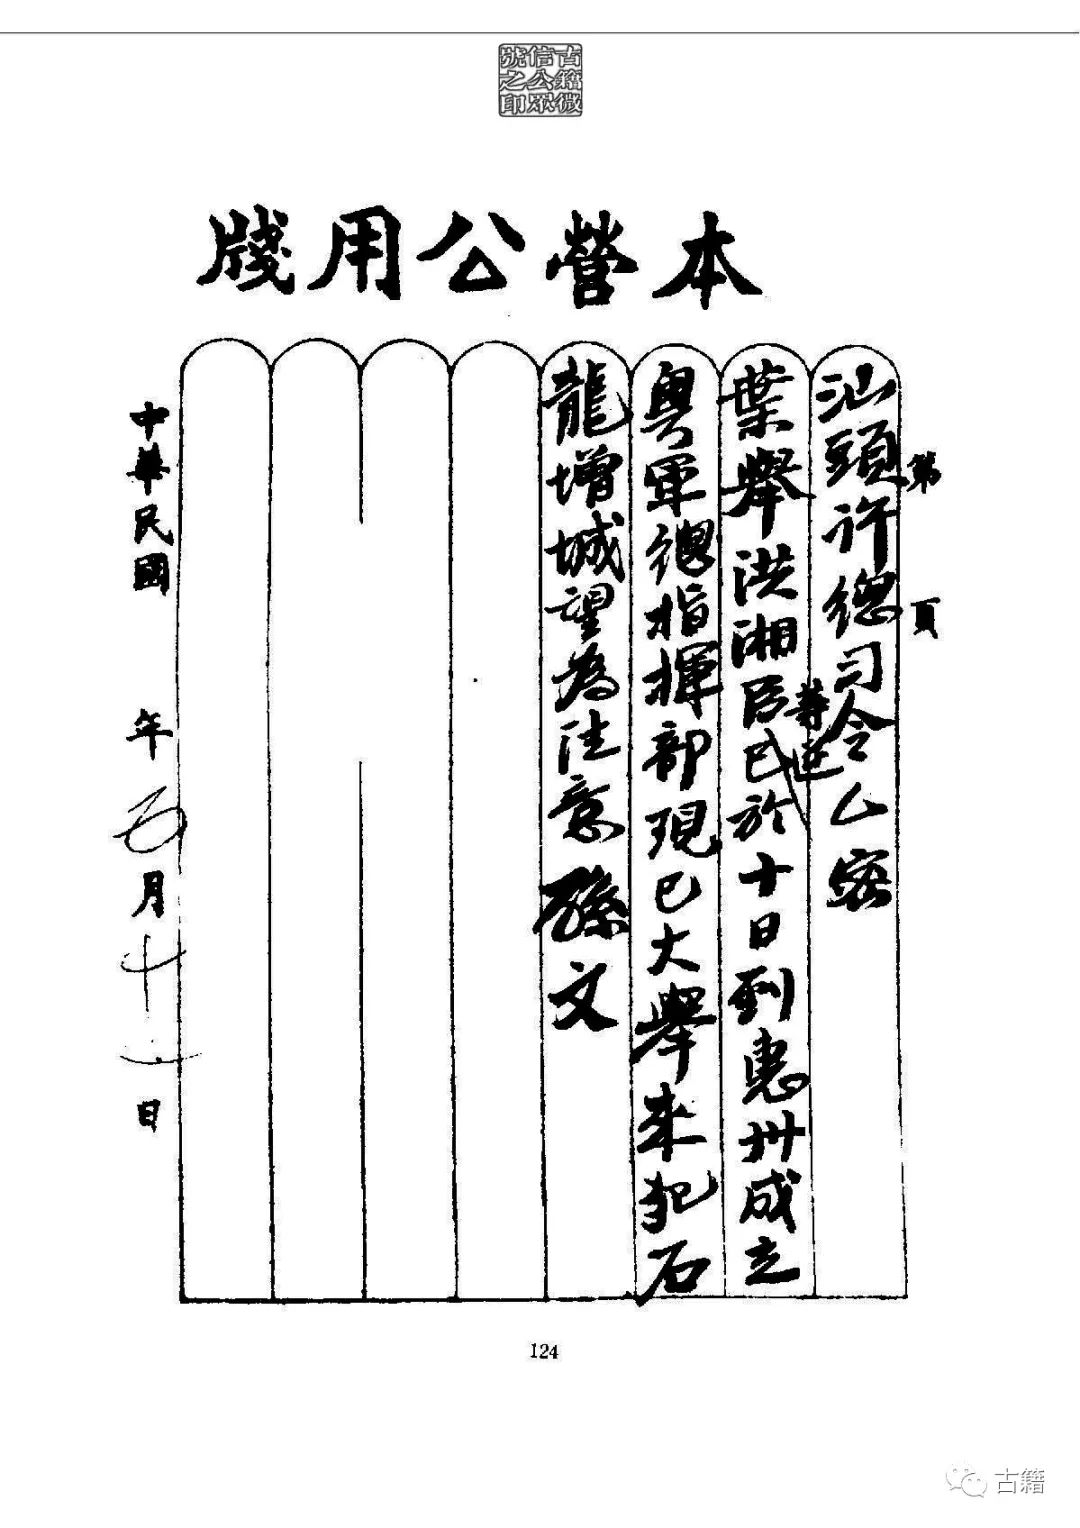 古籍微
信公眾
號之印
本營公用牋
第 頁
汕頭許總司令厶密
葉舉洪湘臣等逆已於十日到惠州成立
粵軍總指揮部現已大舉來犯石
龍增城望為注意 孫文
中華民國 年五月十一日
124
古籍